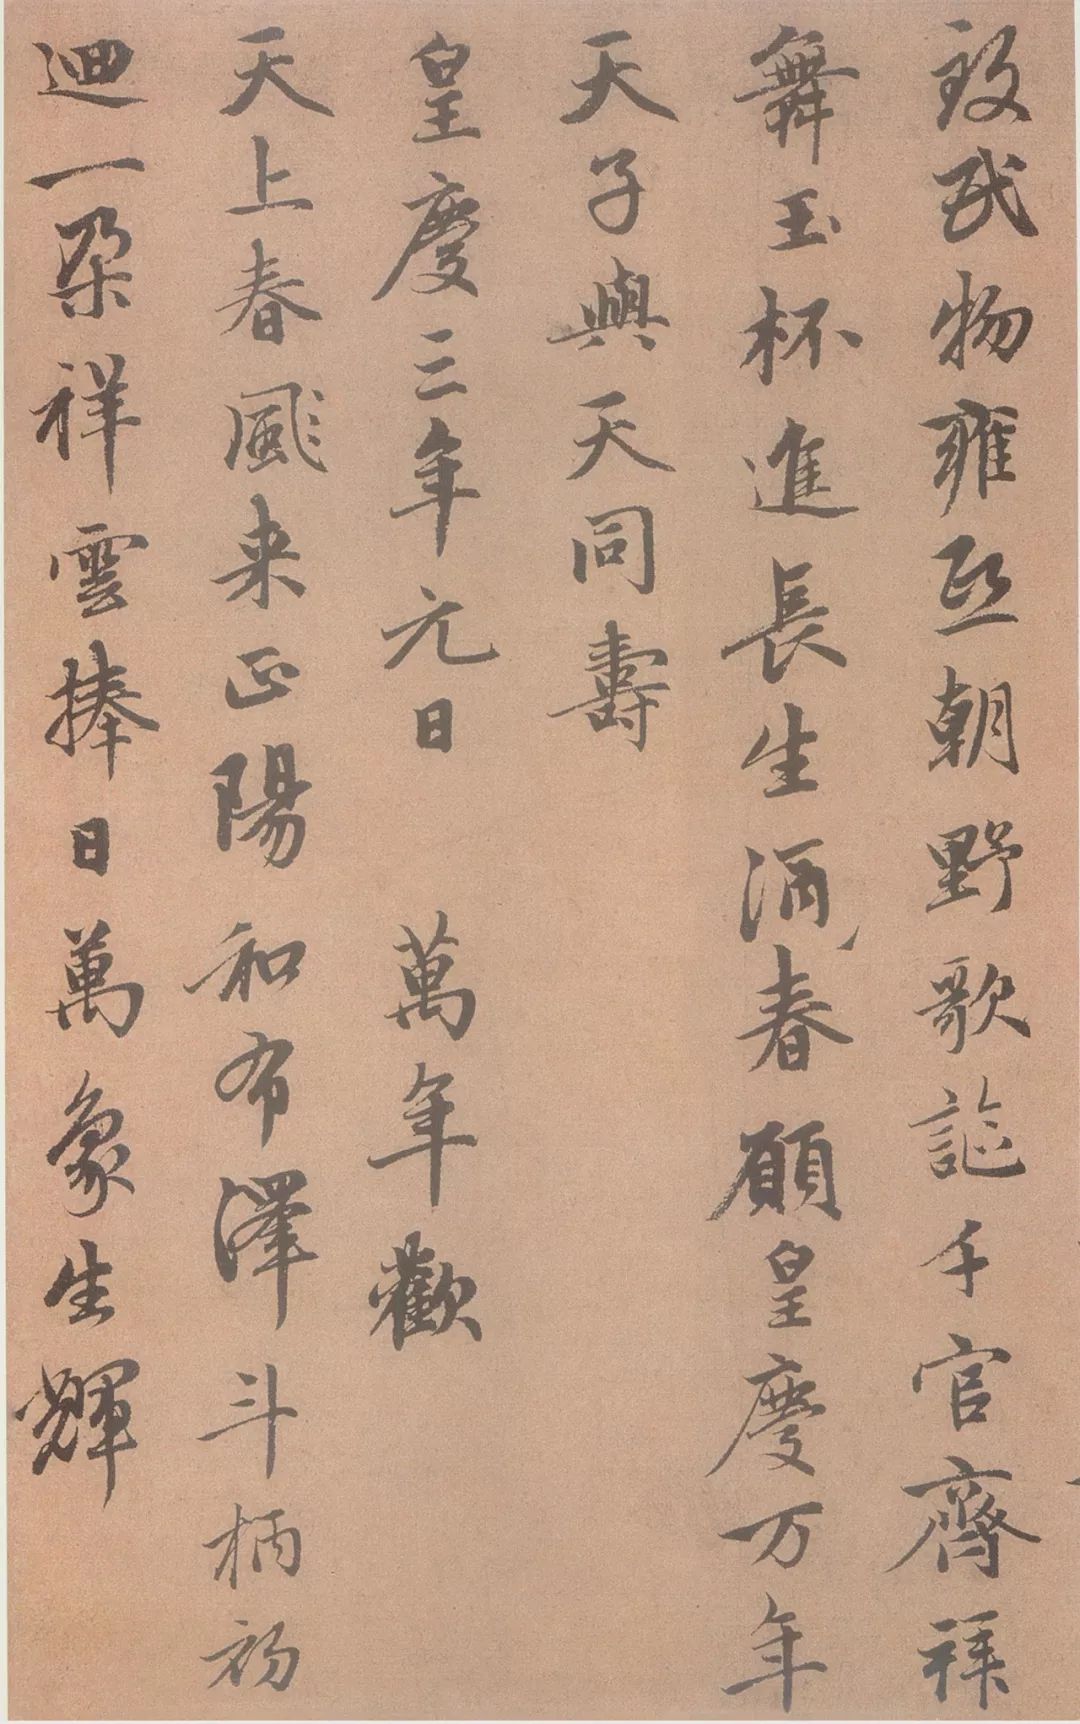 致民物雍熙朝野歌謳千官齊拜
舞玉杯進長生酒春願皇慶万年
天子與天同壽
皇慶三年元日 萬年歡
天上春風来正陽和布澤斗柄初
迴一朶祥雲捧日萬象生輝